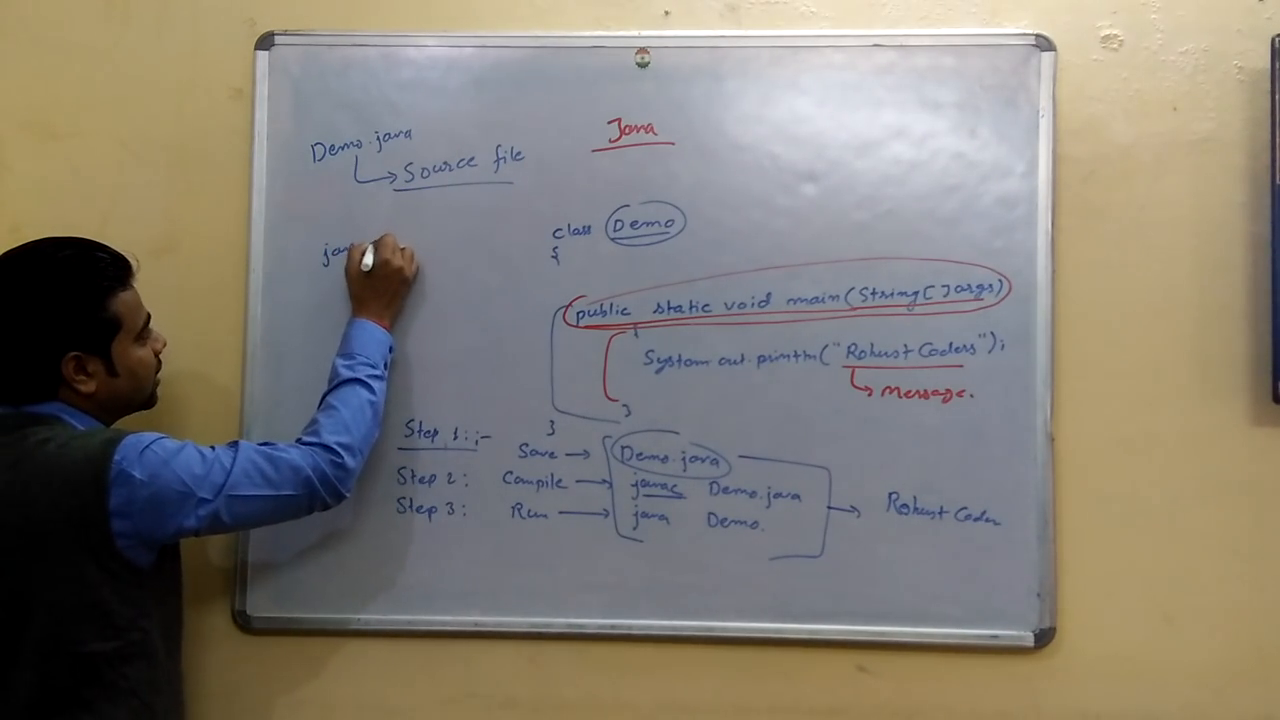 Java
Demo.java
Source file
class Demo
{
public static void main(String[]args)
{
System.out.println("Robust Coders");
Message.
}
}
Step 1:;-
Save → Demo.java
Step 2: Compile → javac Demo.java
Step 3: Run → java Demo.
→ Robust Coder